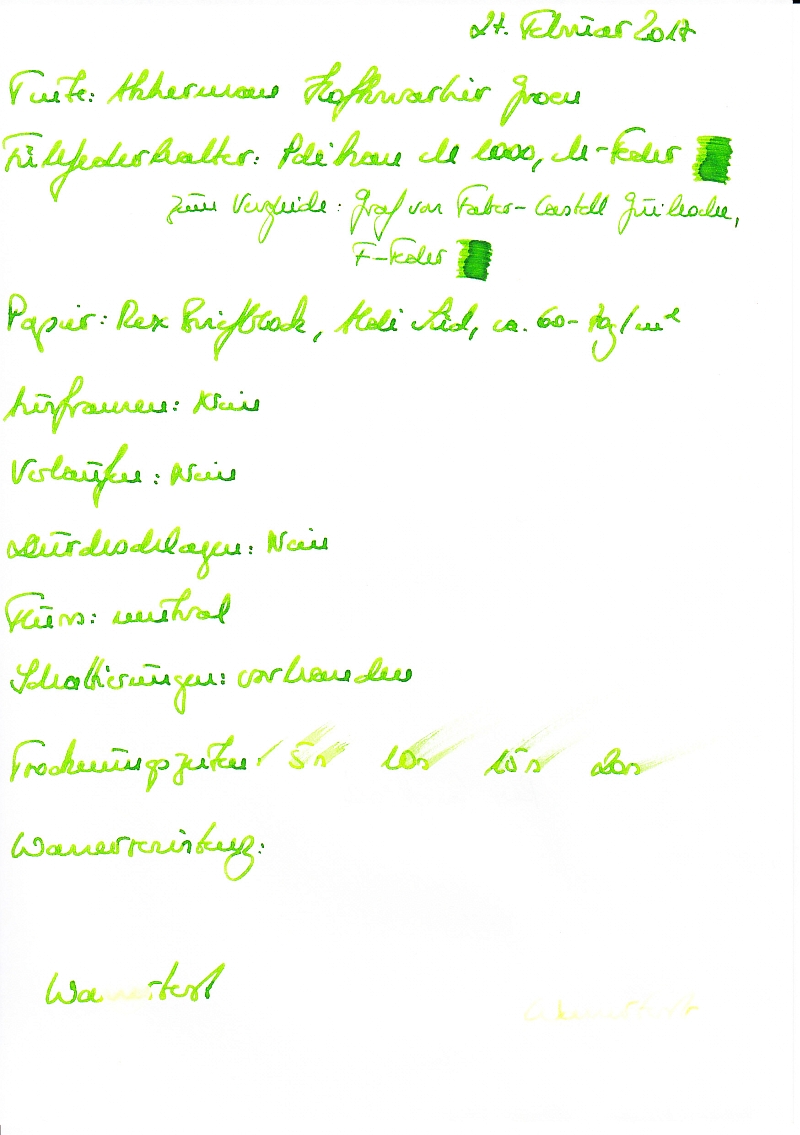 27. Februar 2017
Tinte: Akkerman Hofkwartier Groen
Füllfederhalter: Pelikan M 1000, M-Feder
zum Vergleich: Graf von Faber-Castell Guilloche,
F-Feder
Papier: Rex Briefblock, Aldi Süd, ca. 60- g/m²
Ausfransen: Nein
Verlaufen: Nein
Durchschlagen: Nein
Fluss: neutral
Schattierungen: vorhanden
Trocknungszeiten: 5s 10s 15s 20s
Wasserfestigkeit:
Wassertest
Wassertest